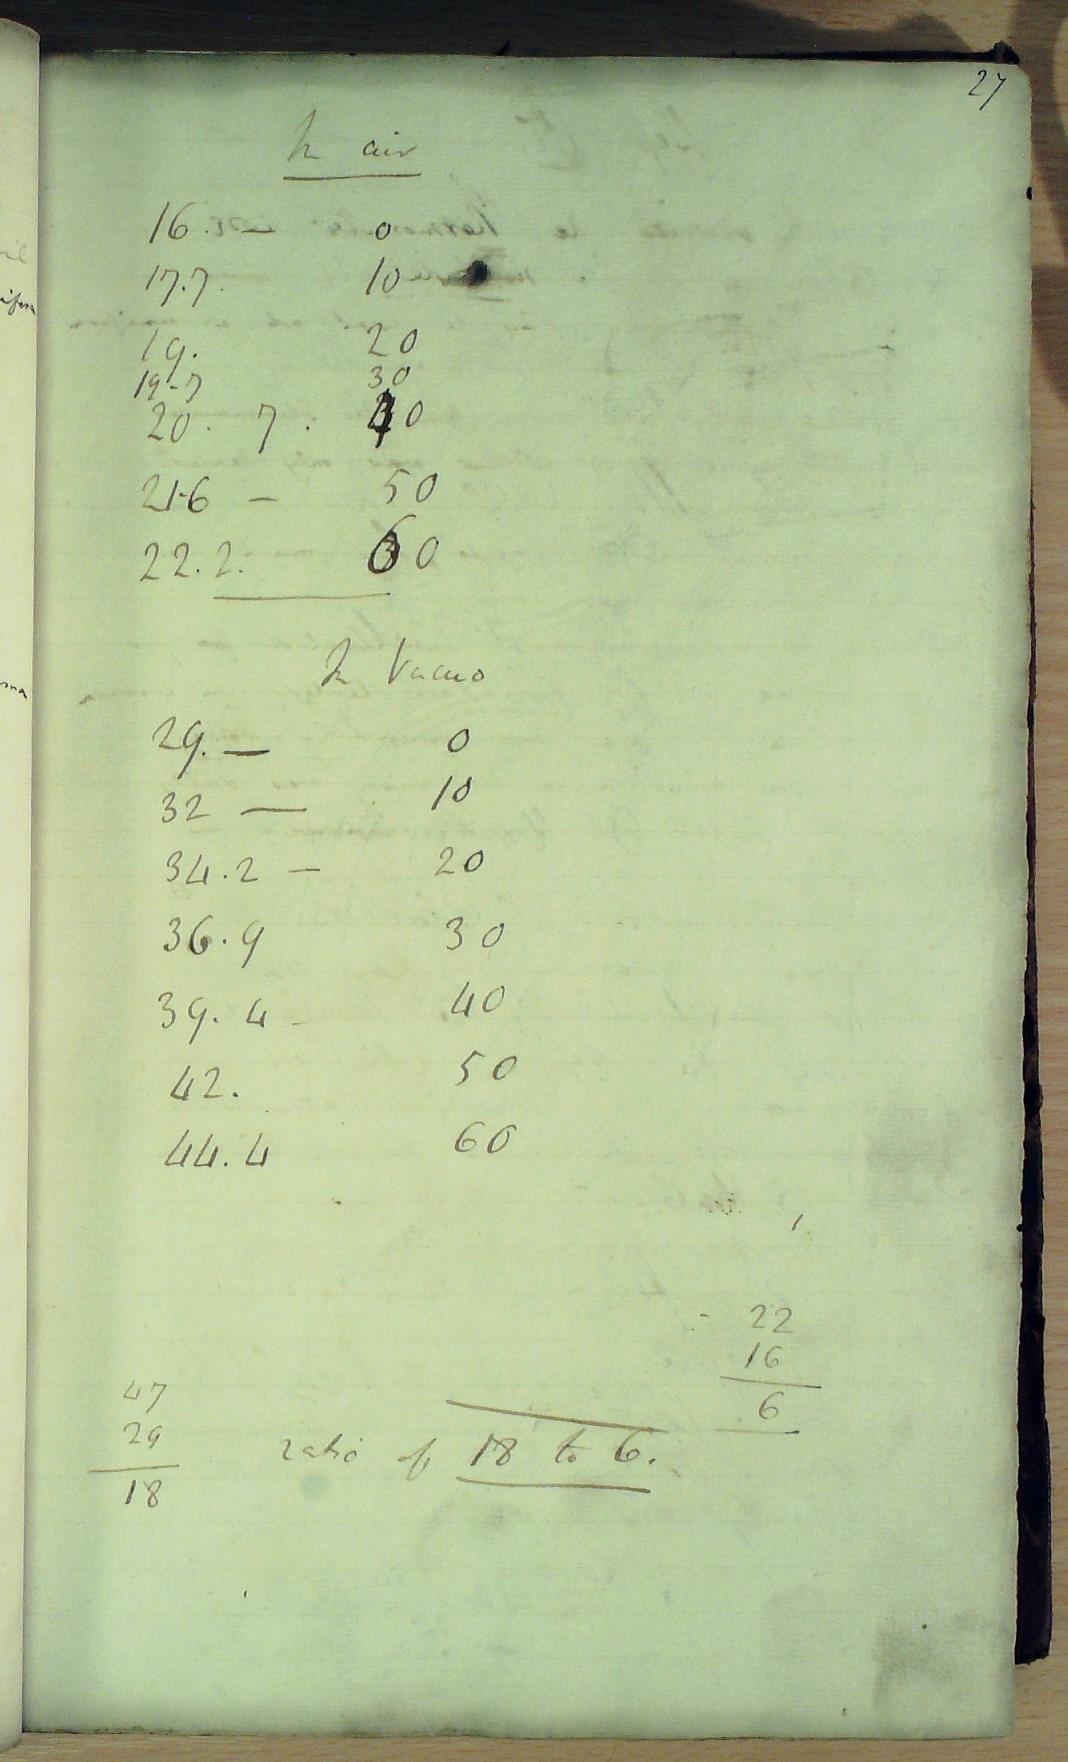 27
In air
16. — 0
17.7. 10
19. 20
19.7 30
20. 7. 40
21.6 — 50
22.2. 60
In Vacuo
29. — 0
32 — 10
34.2 — 20
36.9 30
39.4 - 40
42. 50
44.4 60
22
16
6
47
29
18
ratio of 18 to 6.